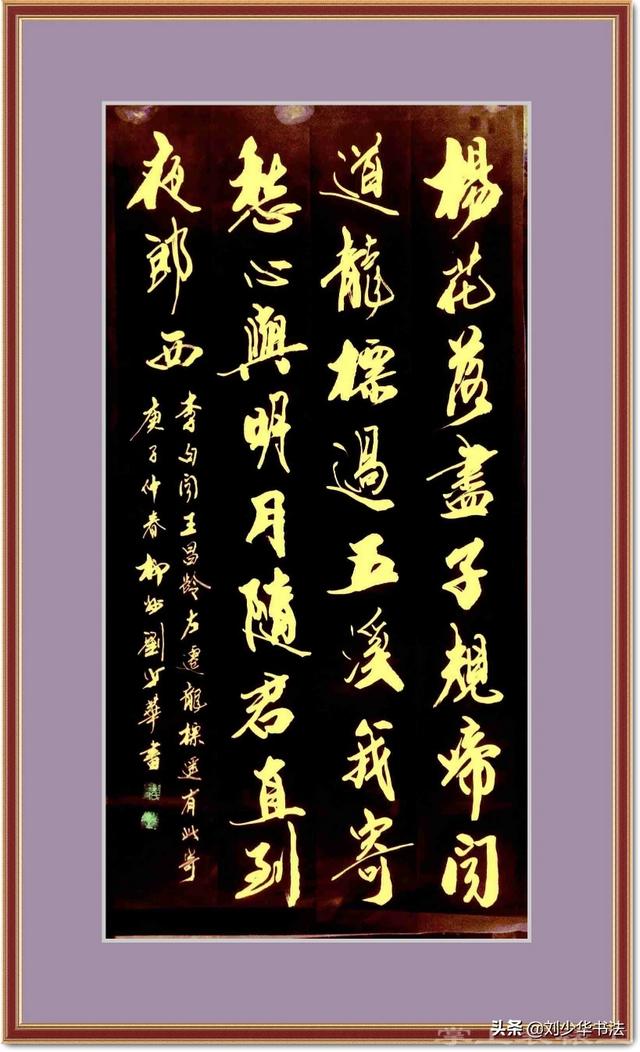 楊花落盡子規啼闻
道龍標過五溪我寄
愁心與明月隨君直到
夜郎西
李白闻王昌齡左遷龍標遥有此寄
庚子仲春柳州劉少華書
头条 @刘少华书法